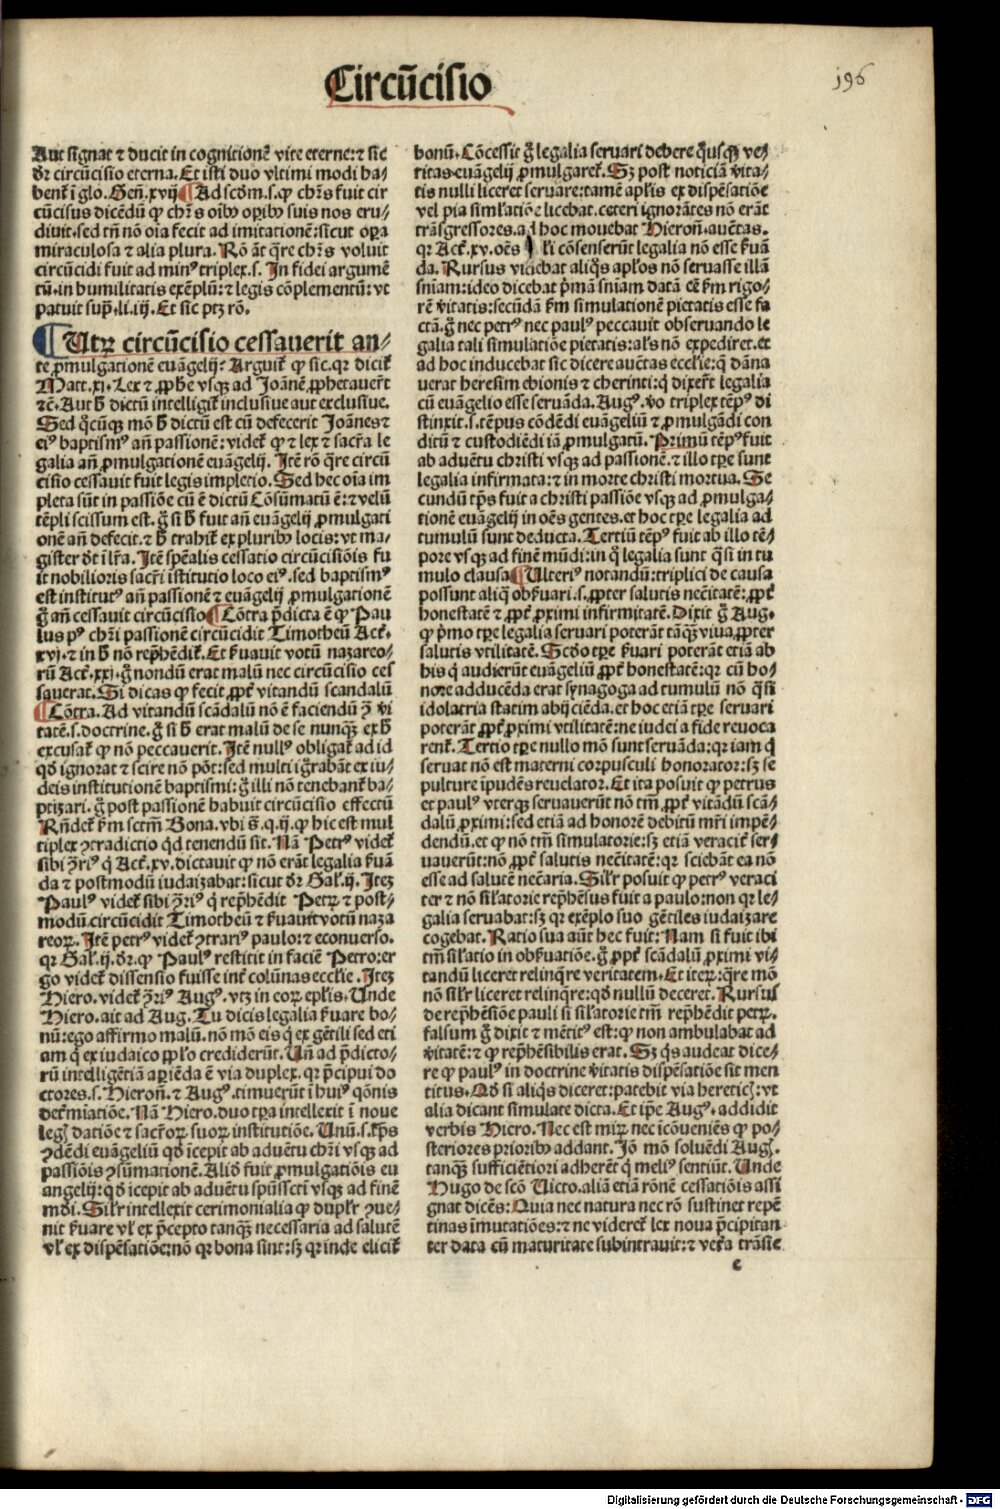 Circūcisio
196
Aut signat ⁊ ducit in cognitionē vite eterne: ⁊ sic
dr̄ circūcisio eterna. Et isti duo vltimi modi ha-
bent̄ ī glo. Geñ. xvij ¶ Ad scd̄m .s. ꝙ chr̄s fuit cir
cūcisus dicēdū ꝙ chr̄s oīb⁹ oꝑib⁹ suis nos eru-
diuit. sed tn̄ nō oīa fecit ad imitationē: sicut oꝑa
miraculosa ⁊ alia plura. Rō āt q̄re chr̄s voluit
circūcidi fuit ad min⁹ triplex .s. In fidei argumē
tū. in humilitatis exēplū: ⁊ legis cōplementū: vt
patuit supͣ. li. iij. Et sic ptꝫ rō.
¶ Utrꝫ circūcisio cessauerit an-
te ꝓmulgationē euāgelij. Arguit̄ ꝙ sic. qꝛ dicit̄
Matt. xi. Lex ⁊ ꝓphe vsqꝫ ad Joānē ꝓphetauer̄t
⁊c̄. Aut h̄ dictū intelligit̄ inclusiue aut exclusiue.
Sed q̄cūqꝫ mō h̄ dictū est cū defecerit Joānes ⁊
ei⁹ baptism⁹ an̄ passionē: videt̄ ꝙ ⁊ lex ⁊ sacr̄a le
galia an̄ ꝓmulgationē euāgelij. Itē rō q̄re circū
cisio cessauit fuit legis impletio. Sed hec oīa im
pleta sūt in passiōe cū ē dictū Cōsūmatū ē: ⁊ velū
tēpli scissum est. ḡ si h̄ fuit an̄ euāgelij ꝓmulgati
onē an̄ defecit. ⁊ h̄ trahit̄ ex pluribꝰ locis: vt ma-
gister dt̄ ī lr̄a. Itē spēalis cessatio circūcisiōis fu
it nobilioris sacr̄i īstitutio loco ei⁹. sed baptism⁹
est institut⁹ an̄ passionē ⁊ euāgelij ꝓmulgationē
ḡ an̄ cessauit circūcisio ¶ Cōtra p̄dicta ē ꝙ Pau
lus p⁹ chr̄i passionē circūcidit Timotheū Act̄.
xvj. ⁊ in h̄ nō rep̄hēdit̄. Et ẜuauit votū nazareo-
rū Act̄. xxj. ḡ nondū erat malū nec circūcisio ces
sauerat. Si dicas ꝙ fecit ꝓpt̄ vitandū scandalū
¶ Cōtra. Ad vitandū scādalū nō ē faciendū ꝯ̄ vi
tatē .s. doctrine. ḡ si h̄ erat malū de se nunqꝫ ex h̄
excusat̄ ꝙ nō peccauerit. Itē null⁹ obligat̄ ad id
qd̄ ignorat ⁊ scire nō pōt: sed multi igr̄abāt ex iu-
deis institutionē baptismi: ḡ illi nō tenebant̄ ba-
ptizari. ḡ post passionē habuit circūcisio effectū
Rn̄det̄ ẜm sctm̄ Bona. vbi s̄. q. ij. ꝙ hic est mul
tiplex ꝯtradictio qd̄ tenendū sit. Nā Petr⁹ videt̄
sibi ꝯ̄ri⁹ q̄ Act̄. xv. dictauit ꝙ nō erāt legalia ẜuā
da ⁊ postmodū iudaizabat: sicut dr̄ Gal̄. ij. Iteꝫ
Paul⁹ videt̄ sibi ꝯ̄ri⁹ q̄ rep̄hēdit Petrꝫ ⁊ post-
modū circūcidit Timotheū ⁊ ẜuauit votū naza
reoꝝ. Itē petr⁹ videt̄ ꝯtrari⁹ paulo: ⁊ econuerso.
qꝛ Gal̄. ij. dr̄. ꝙ Paul⁹ restitit in faciē Petro: er
go videt̄ dissensio fuisse int̄ colūnas eccl̄ie. Iteꝫ
Hiero. videt̄ ꝯ̄ri⁹ Aug⁹. vtꝫ in eoꝝ epl̄is. Unde
Hiero. ait ad Aug. Tu dicis legalia ẜuare bo-
nū: ego affirmo malū. nō mō eis q̄ ex gētili sed eti
am q̄ ex iudaico ppl̄o crediderūt. Un̄ ad p̄dicto-
rū intelligētiā aꝑiēda ē via duplex. qꝛ p̄cipui do
ctores .s. Hieroñ. ⁊ Aug⁹. timuerūt ī hui⁹ qōnis
det̄mīatiōe. Nā Hiero. duo tꝑa intellexit ī noue
legꝭ datiōe ⁊ sacr̄oꝝ suoꝝ institutiōe. Unū .s. tp̄s
ꝯdēdi euāgeliū qd̄ īcepit ab aduētu chr̄i vsqꝫ ad
passiōis ꝯsūmationē. Aliḋ fuit ꝓmulgatiōis eu
angelij: qd̄ īcepit ab aduētu spūsscti vsqꝫ ad finē
mūdi. Sil̄r intellexit cerimonialia ꝙ dupl̄r ꝯue-
nit ẜuare vl̄ ex p̄cepto tanqꝫ necessaria ad salutē
vl̄ ex dispēsatiōe: nō qꝛ bona sint: sꝫ qꝛ inde elicit̄
bonū. Cōcessit ḡ legalia seruari debere q̄usqꝫ ve-
ritas euāgelij ꝓmulgaret̄. Sꝫ post noticiā v̄ita-
tis nulli liceret seruare: tamē apl̄is ex dispēsatiōe
vel pia siml̄atiōe licebat. ceteri ignorātes nō erāt
trāsgressores. ad hoc mouebat Hieroñ. auc̄tas.
qꝛ Act̄. xv. oēs līconsenserūt legalia nō esse ẜuā
da. Rursus videbat aliq̄s apl̄os nō seruasse illā
sn̄iam: ideo dicebat p̄mā sniam datā eē ẜm rigo-
rē v̄itatis: secūdā ẜm simulationē pietatis esse fa
ctā. ḡ nec petr⁹ nec paul⁹ peccauit obseruando le
galia tali simulatiōe pietatis: als̄ nō expediret. et
ad hoc inducebat sic dicere auc̄tas eccl̄ie: q̄ dāna
uerat heresim ebionis ⁊ cherinti: q̄ dixer̄t legalia
cū euāgelio esse seruāda. Aug⁹. v̄o triplex tēp⁹ di
stinxit .s. tēpus cōdēdi euāgeliū ⁊ ꝓmulgādi con
ditū ⁊ custodiēdi iā ꝓmulgatū. Primū tēp⁹ fuit
ab aduētu christi vsqꝫ ad passionē. ⁊ illo tꝑe sunt
legalia infirmata: ⁊ in morte christi mortua. Se
cundū tp̄s fuit a christi passiōe vsqꝫ ad ꝓmulga-
tionē euāgelij in oēs gentes. et hoc tꝑe legalia ad
tumulū sunt deducta. Tertiū tēp⁹ fuit ab illo tē-
pore vsqꝫ ad finē mūdi: in q̊ legalia sunt q̄si in tu
mulo clausa ¶ Ulteri⁹ notandū: triplici de causa
possunt aliq̄ obẜuari .s. ꝓpter salutis necc̄itatē: ꝓpt̄
honestatē ⁊ ꝓpt̄ ꝓximi infirmitatē. Dixit ḡ Aug.
ꝙ p̄mo tꝑe legalia seruari poterāt tāqꝫ viua ꝓpter
salutis vtilitatē. Scd̄o tꝑe ẜuari poterāt etiā ab
his q̄ audierūt euāgeliū ꝓpt̄ honestatē: qꝛ cū ho-
nore adducēda erat synagoga ad tumulū nō q̄si
idolatria statim abijciēda. et hoc etiā tꝑe seruari
poterāt ꝓpt̄ ꝓximi vtilitatē: ne iudei a fide reuoca
rent̄. Tertio tꝑe nullo mō sunt seruāda: qꝛ iam q̄
seruat nō est materni corpusculi honorator: sꝫ se
pulture īpudēs reuelator. Et ita posuit ꝙ petrus
et paul⁹ vterqꝫ seruauerūt nō tm̄ ꝓpt̄ vitādū scā-
dalū ꝓximi: sed etiā ad honorē debitū mr̄i impē-
dendū. et ꝙ nō tm̄ simulatorie: sꝫ etiā veracit̄ ser-
uauerūt: nō ꝓpt̄ salutis necc̄itatē: qꝛ sciebāt ea nō
esse ad salutē necc̄aria. Sil̄r posuit ꝙ petr⁹ veraci
ter ⁊ nō sil̄atorie rep̄hēsus fuit a paulo: non qꝛ le-
galia seruabat: sꝫ qꝛ exēplo suo gētiles iudaizare
cogebat. Ratio sua aūt hec fuit: Nam si fuit ibi
tm̄ sil̄atio in obẜuatiōe. ḡ ꝓpt̄ scādalū ꝓximi vi-
tandū liceret relinq̄re veritatem. Et iterꝫ: q̄re mō
nō sil̄r liceret relinq̄re: qd̄ nullū deceret. Rursus
de rep̄hēsiōe pauli si sil̄atorie tm̄ rep̄hēdit petrꝫ.
falsum ḡ dixit ⁊ mētit⁹ est: ꝙ non ambulabat ad
v̄itatē: ⁊ ꝙ rep̄hēsibilis erat. Sꝫ q̄s audeat dice-
re ꝙ paul⁹ in doctrine v̄itatis dispēsatiōe sit men
titus. Qd̄ si aliq̄s diceret: patebit via heretic̄: vt
alia dicant simulate dicta. Et ip̄e Aug⁹. addidit
verbis Hiero. Nec est mirꝫ nec īcōueniēs ꝙ po-
steriores priorib⁹ addant. Jō mō soluēdi Augꝭ.
tanqꝫ sufficiētiori adheret̄ q̄ meli⁹ sentiūt. Unde
Hugo de scō Victo. aliā etiā rōnē cessatiōis assi
gnat dicēs: Quia nec natura nec rō sustinet repē
tinas īmutatiōes: ⁊ ne videret̄ lex noua p̄cipitan
ter data cū maturitate subintrauit: ⁊ vet̄a trāsie
e
Digitalisierung gefördert durch die Deutsche Forschungsgemeinschaft - DFG